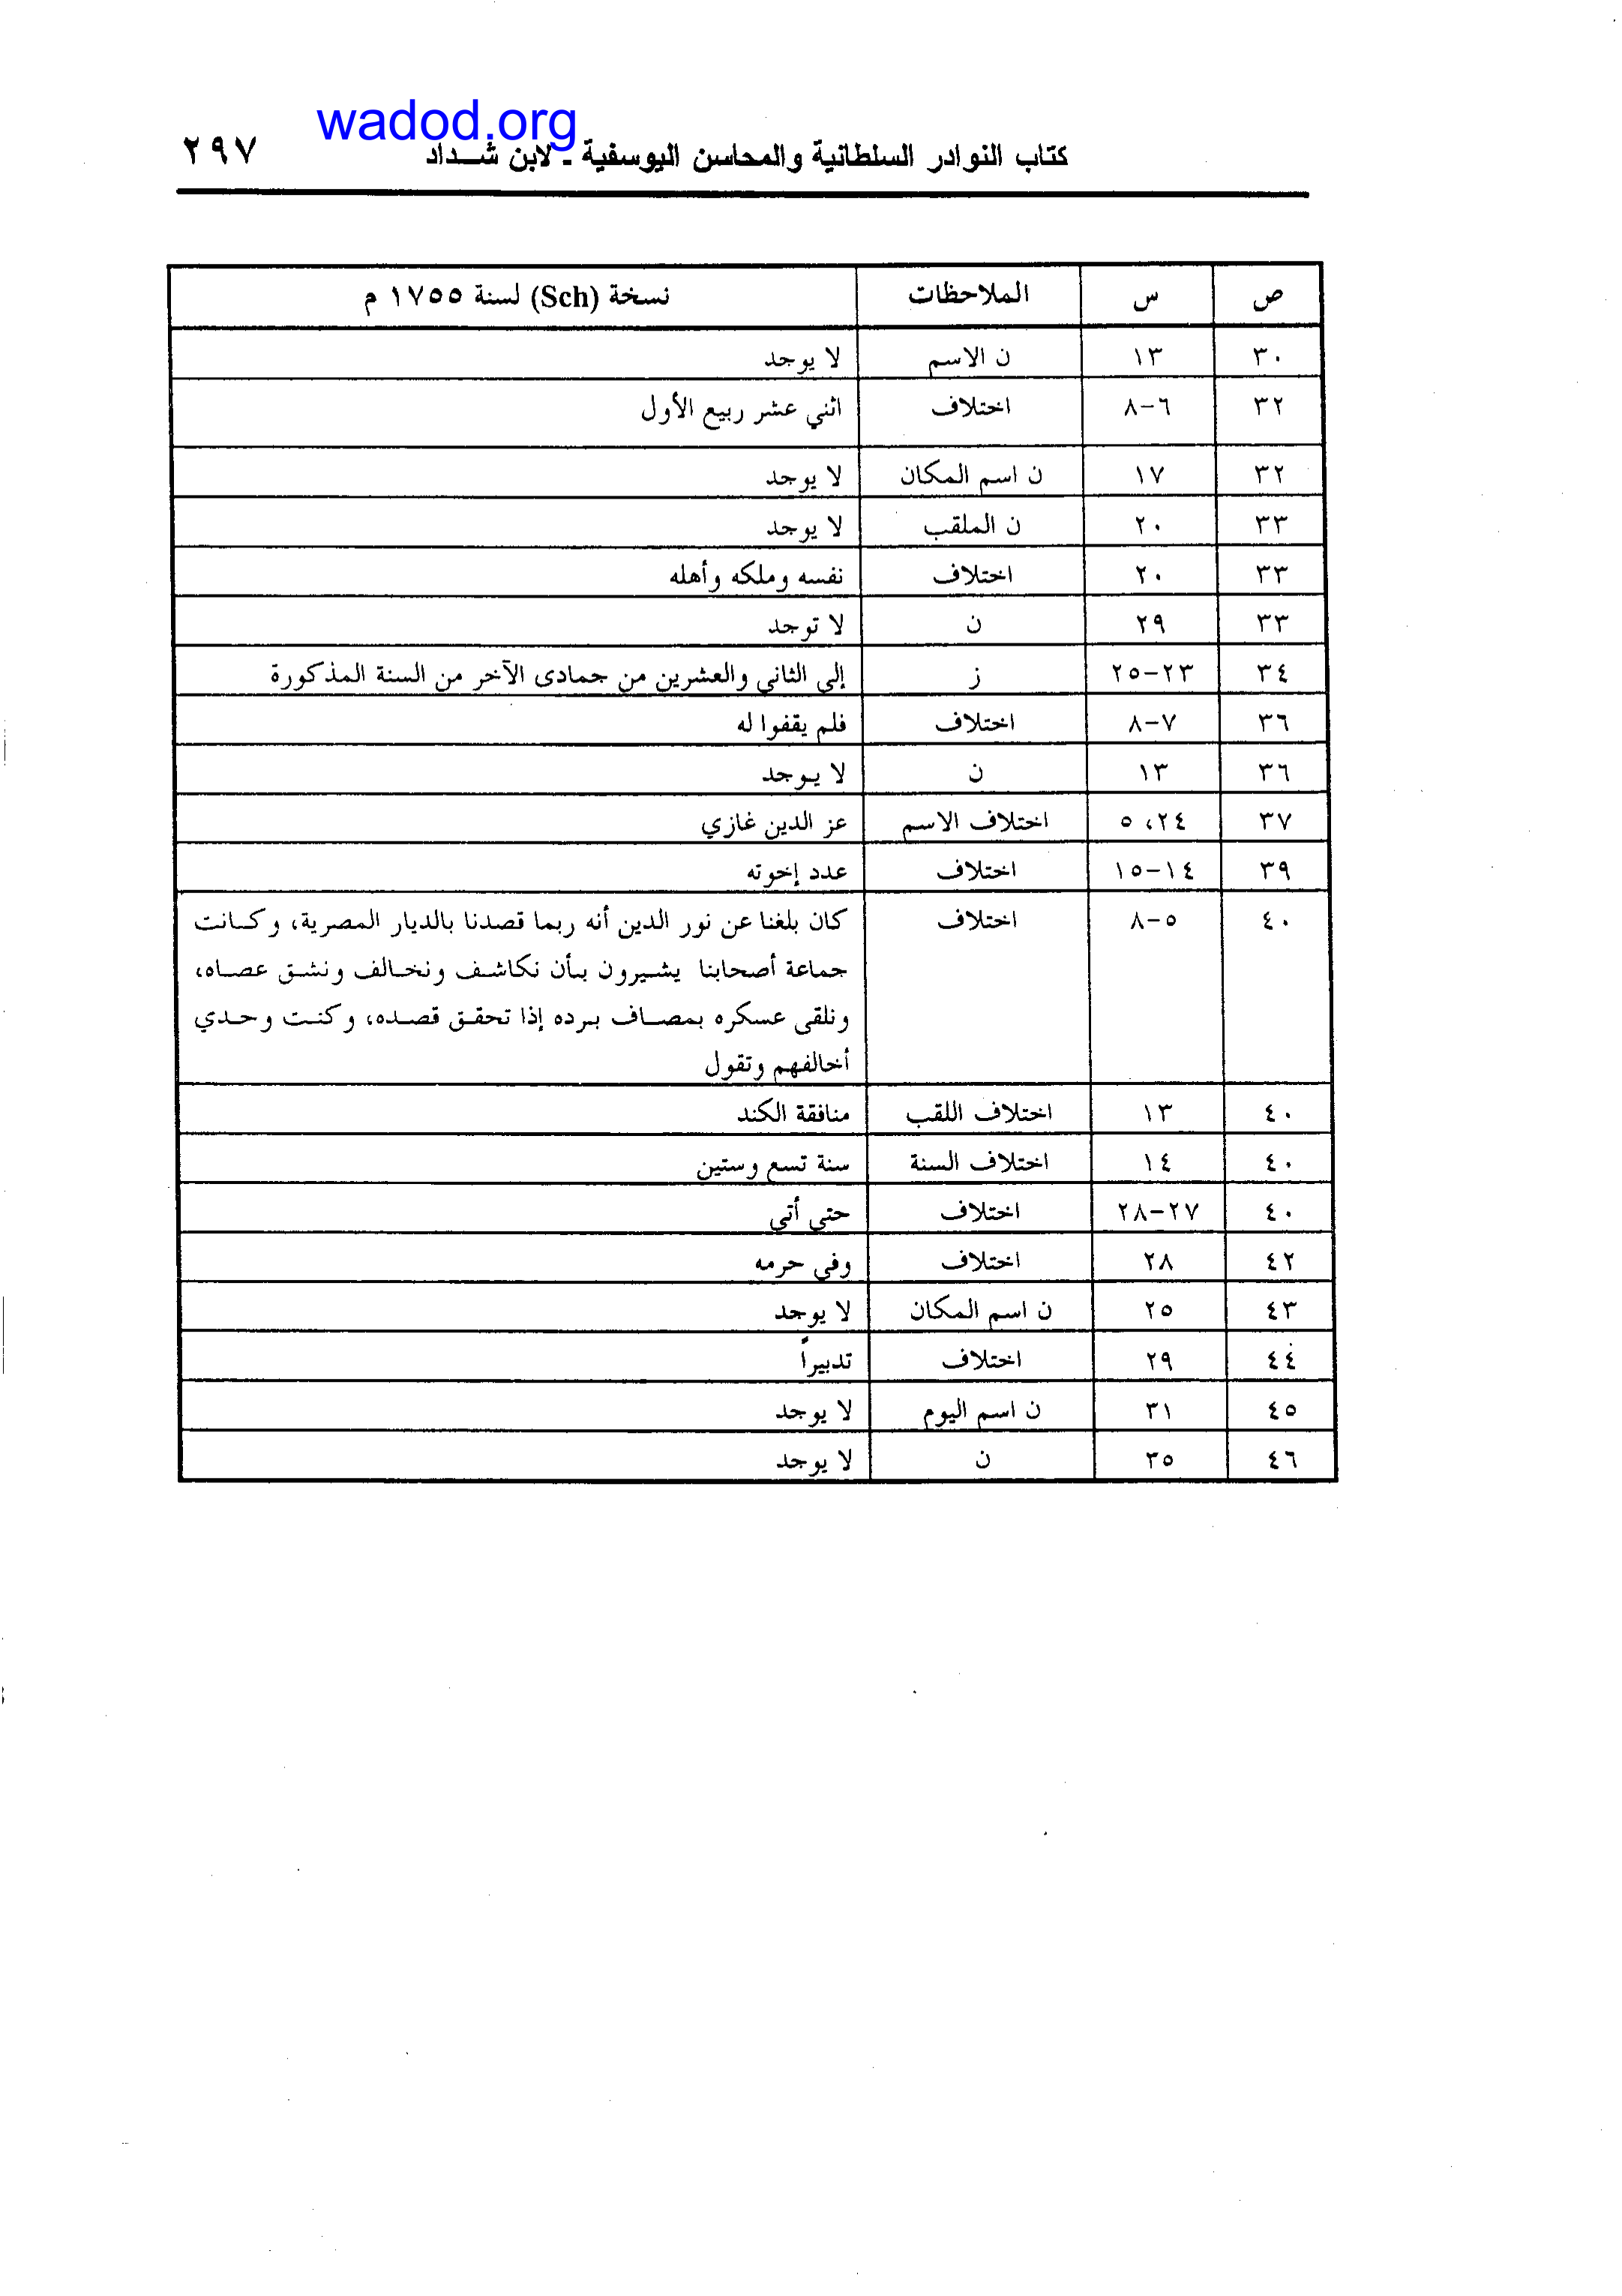 wadod.org
كتاب النوادر السلطانية والمحاسن اليوسفية ـ لابن شـــداد ٢٩٧
ص س الملاحظات نسخة (Sch) لسنة ١٧٥٥ م
٣٠ ١٣ ن الاسم لا يوجد
٣٢ ٦-٨ اختلاف اثني عشر ربيع الأول
٣٢ ١٧ ن اسم المكان لا يوجد
٣٣ ٢٠ ن الملقب لا يوجد
٣٣ ٢٠ اختلاف نفسه وملكه وأهله
٣٣ ٢٩ ن لا توجد
٣٤ ٢٣-٢٥ ز إلى الثاني والعشرين من جمادى الآخر من السنة المذكورة
٣٦ ٧-٨ اختلاف فلم يقفوا له
٣٦ ١٣ ن لا يوجد
٣٧ ٢٤، ٥ اختلاف الاسم عز الدين غازي
٣٩ ١٤-١٥ اختلاف عدد إخوته
٤٠ ٥-٨ اختلاف كان بلغنا عن نور الدين أنه ربما قصدنا بالديار المصرية، وكانت
جماعة أصحابنا يشيرون بأن نكاشف ونخالف ونشق عصاه،
ونلقى عسكره بمصاف برده إذا تحقق قصده، وكنت وحدي
أخالفهم وتقول
٤٠ ١٣ اختلاف اللقب منافقة الكند
٤٠ ١٤ اختلاف السنة سنة تسع وستين
٤٠ ٢٧-٢٨ اختلاف حتى أتي
٤٢ ٢٨ اختلاف وفي حرمه
٤٣ ٢٥ ن اسم المكان لا يوجد
٤٤ ٢٩ اختلاف تدبيراً
٤٥ ٣١ ن اسم اليوم لا يوجد
٤٦ ٣٥ ن لا يوجد